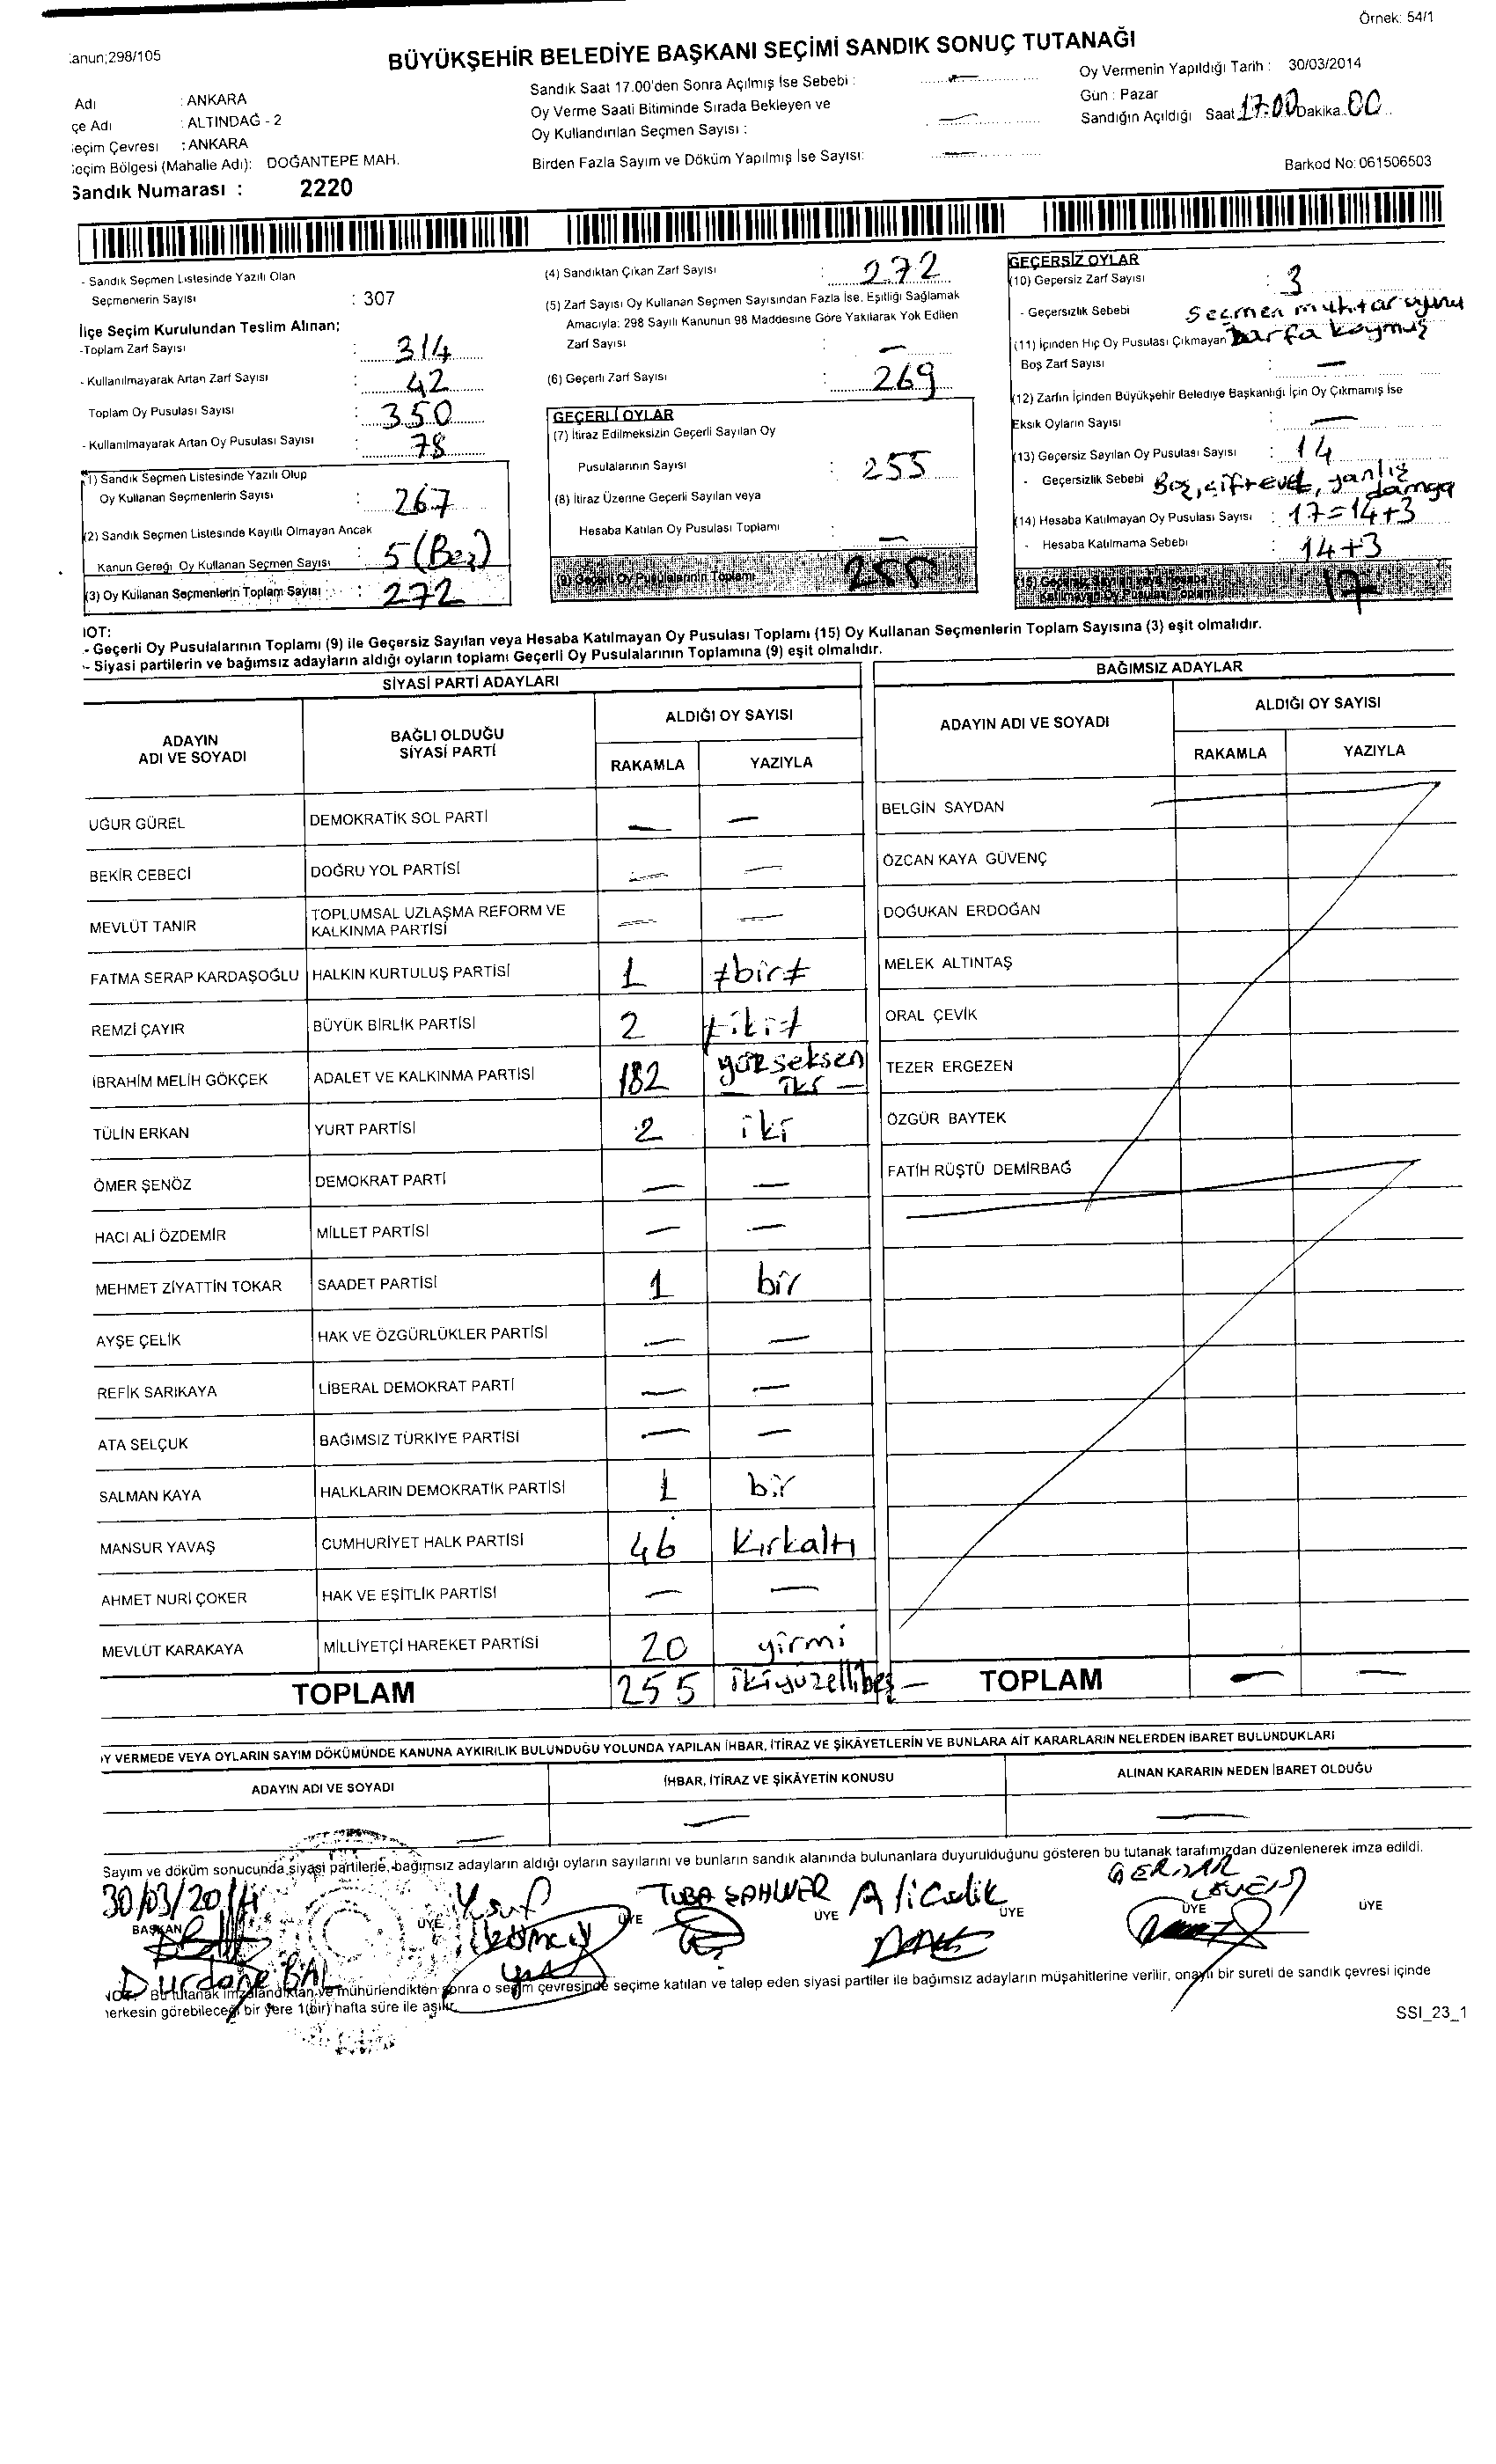 Örnek: 54/1
anun;298/105
BÜYÜKŞEHİR BELEDİYE BAŞKANI SEÇİMİ SANDIK SONUÇ TUTANAĞI
Adı : ANKARA
çe Adı : ALTINDAĞ - 2
eçim Çevresi : ANKARA
eçim Bölgesi (Mahalle Adı): DOĞANTEPE MAH.
Sandık Numarası : 2220
Sandık Saat 17.00'den Sonra Açılmış İse Sebebi :
Oy Verme Saati Bitiminde Sırada Bekleyen ve
Oy Kullandırılan Seçmen Sayısı :
Birden Fazla Sayım ve Döküm Yapılmış İse Sayısı:
Oy Vermenin Yapıldığı Tarih : 30/03/2014
Gün : Pazar
Sandığın Açıldığı Saat 17:00 Dakika 00
Barkod No: 061506503
- Sandık Seçmen Listesinde Yazılı Olan
Seçmenlerin Sayısı : 307
İlçe Seçim Kurulundan Teslim Alınan;
-Toplam Zarf Sayısı : 314
- Kullanılmayarak Artan Zarf Sayısı : 42
Toplam Oy Pusulası Sayısı : 350
- Kullanılmayarak Artan Oy Pusulası Sayısı : 78
(1) Sandık Seçmen Listesinde Yazılı Olup
Oy Kullanan Seçmenlerin Sayısı : 267
(2) Sandık Seçmen Listesinde Kayıtlı Olmayan Ancak
Kanun Gereği Oy Kullanan Seçmen Sayısı : 5 (Beş)
(3) Oy Kullanan Seçmenlerin Toplam Sayısı : 272
(4) Sandıktan Çıkan Zarf Sayısı : 272
(5) Zarf Sayısı Oy Kullanan Seçmen Sayısından Fazla İse, Eşitliği Sağlamak
Amacıyla; 298 Sayılı Kanunun 98 Maddesine Göre Yakılarak Yok Edilen
Zarf Sayısı : –
(6) Geçerli Zarf Sayısı : 269
GEÇERLİ OYLAR
(7) İtiraz Edilmeksizin Geçerli Sayılan Oy
Pusulalarının Sayısı : 255
(8) İtiraz Üzerine Geçerli Sayılan veya
Hesaba Katılan Oy Pusulası Toplamı : –
(9) Geçerli Oy Pusulalarının Toplamı 255
GEÇERSİZ OYLAR
(10) Geçersiz Zarf Sayısı : 3
- Geçersizlik Sebebi seçmen muhtar oyunu
zarfa koymuş
(11) İçinden Hiç Oy Pusulası Çıkmayan
Boş Zarf Sayısı : –
(12) Zarfın İçinden Büyükşehir Belediye Başkanlığı İçin Oy Çıkmamış İse
Eksik Oyların Sayısı : –
(13) Geçersiz Sayılan Oy Pusulası Sayısı : 14
- Geçersizlik Sebebi Boş, çift evet, yanlış
damga
(14) Hesaba Katılmayan Oy Pusulası Sayısı : 17=14+3
- Hesaba Katılmama Sebebi : 14+3
(15) Geçersiz Sayılan veya Hesaba
Katılmayan Oy Pusulası Toplamı 17
IOT:
- Geçerli Oy Pusulalarının Toplamı (9) ile Geçersiz Sayılan veya Hesaba Katılmayan Oy Pusulası Toplamı (15) Oy Kullanan Seçmenlerin Toplam Sayısına (3) eşit olmalıdır.
- Siyasi partilerin ve bağımsız adayların aldığı oyların toplamı Geçerli Oy Pusulalarının Toplamına (9) eşit olmalıdır.
SİYASİ PARTİ ADAYLARI
ADAYIN
ADI VE SOYADI
BAĞLI OLDUĞU
SİYASİ PARTİ
ALDIĞI OY SAYISI
RAKAMLA YAZIYLA
UĞUR GÜREL DEMOKRATİK SOL PARTİ – –
BEKİR CEBECİ DOĞRU YOL PARTİSİ – –
MEVLÜT TANIR TOPLUMSAL UZLAŞMA REFORM VE
KALKINMA PARTİSİ – –
FATMA SERAP KARDAŞOĞLU HALKIN KURTULUŞ PARTİSİ 1 ≠bir≠
REMZİ ÇAYIR BÜYÜK BİRLİK PARTİSİ 2 ≠iki≠
İBRAHİM MELİH GÖKÇEK ADALET VE KALKINMA PARTİSİ 182 yüzseksen
iki –
TÜLİN ERKAN YURT PARTİSİ 2 iki
ÖMER ŞENÖZ DEMOKRAT PARTİ – –
HACI ALİ ÖZDEMİR MİLLET PARTİSİ – –
MEHMET ZİYATTİN TOKAR SAADET PARTİSİ 1 bir
AYŞE ÇELİK HAK VE ÖZGÜRLÜKLER PARTİSİ – –
REFİK SARIKAYA LİBERAL DEMOKRAT PARTİ – –
ATA SELÇUK BAĞIMSIZ TÜRKİYE PARTİSİ – –
SALMAN KAYA HALKLARIN DEMOKRATİK PARTİSİ 1 bir
MANSUR YAVAŞ CUMHURİYET HALK PARTİSİ 46 Kırkaltı
AHMET NURİ ÇOKER HAK VE EŞİTLİK PARTİSİ – –
MEVLÜT KARAKAYA MİLLİYETÇİ HAREKET PARTİSİ 20 yirmi
TOPLAM 255 ikiyüzellibeş –
BAĞIMSIZ ADAYLAR
ADAYIN ADI VE SOYADI
ALDIĞI OY SAYISI
RAKAMLA YAZIYLA
BELGİN SAYDAN
ÖZCAN KAYA GÜVENÇ
DOĞUKAN ERDOĞAN
MELEK ALTINTAŞ
ORAL ÇEVİK
TEZER ERGEZEN
ÖZGÜR BAYTEK
FATİH RÜŞTÜ DEMİRBAĞ
TOPLAM – –
Y VERMEDE VEYA OYLARIN SAYIM DÖKÜMÜNDE KANUNA AYKIRILIK BULUNDUĞU YOLUNDA YAPILAN İHBAR, İTİRAZ VE ŞİKÂYETLERİN VE BUNLARA AİT KARARLARIN NELERDEN İBARET BULUNDUKLARI
ADAYIN ADI VE SOYADI İHBAR, İTİRAZ VE ŞİKÂYETİN KONUSU ALINAN KARARIN NEDEN İBARET OLDUĞU
– – –
Sayım ve döküm sonucunda siyasi partilerle, bağımsız adayların aldığı oyların sayılarını ve bunların sandık alanında bulunanlara duyurulduğunu gösteren bu tutanak tarafımızdan düzenlenerek imza edildi.
30/03/2014
BAŞKAN ÜYE ÜYE ÜYE ÜYE ÜYE ÜYE
Yusuf
TUBA
Ali Çelik
SERDAR
Durdane BAL
Bu tutanak imzalandıktan ve mühürlendikten sonra o seçim çevresinde seçime katılan ve talep eden siyasi partiler ile bağımsız adayların müşahitlerine verilir, onaylı bir sureti de sandık çevresi içinde
herkesin görebileceği bir yere 1(bir) hafta süre ile asılır.
SSI_23_1